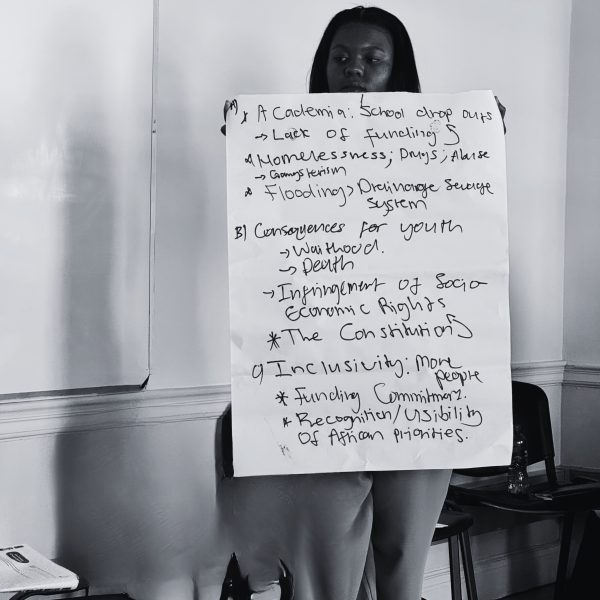 A) * Academia: School drop outs
→ Lack of funding
* Homelessness; Drugs; Abuse
→ Gangsterism
* Flooding > Draininage Sewage
System
B) Consequences for youth
→ Waithood.
→ Death
→ Infringement of Socio-
Economic Rights
* The Constitution
C) Inclusivity: More
people
* Funding Commitment.
* Recognition/Visibility
Of African priorities.